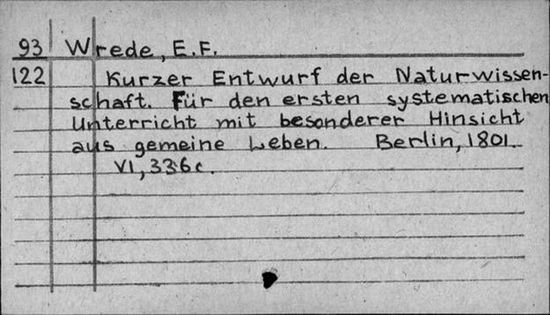 93 Wrede, E.F.
122 Kurzer Entwurf der Naturwissen-
schaft. Für den ersten systematischen
Unterricht mit besonderer Hinsicht
aus gemeine Leben. Berlin, 1801.
VI, 336 c.